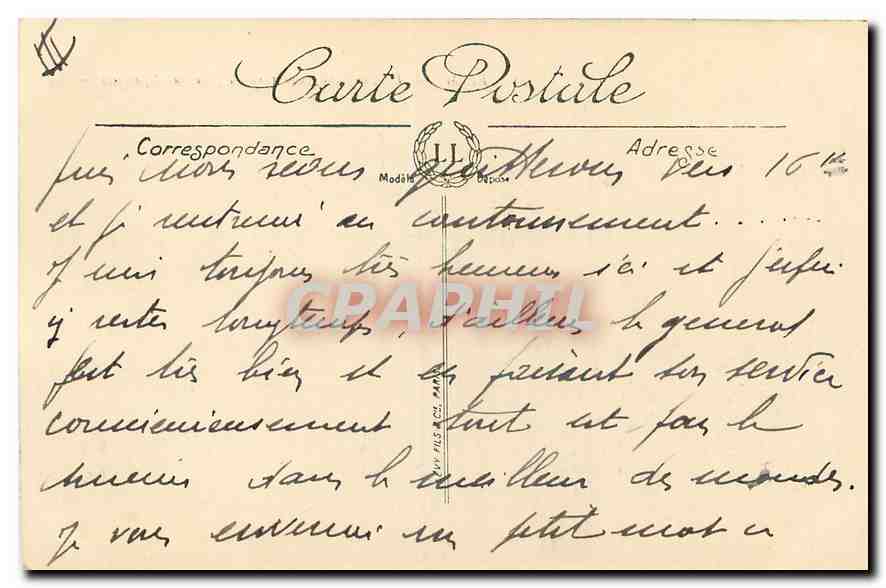 II
Carte Postale
Correspondance LL Adresse
Modèle Déposé
puis nous nous quitterons vers 16 h
et je rentrerai au cantonnement.......
Je suis toujours très heureux ici et j'espère
y rester longtemps, d'ailleurs le général
est très bien et en faisant son service
consciencieusement tout est pour le
mieux dans le meilleur des mondes.
Je vous enverrai un petit mot
CPAPHIL
LEVY FILS & Cie, PARIS